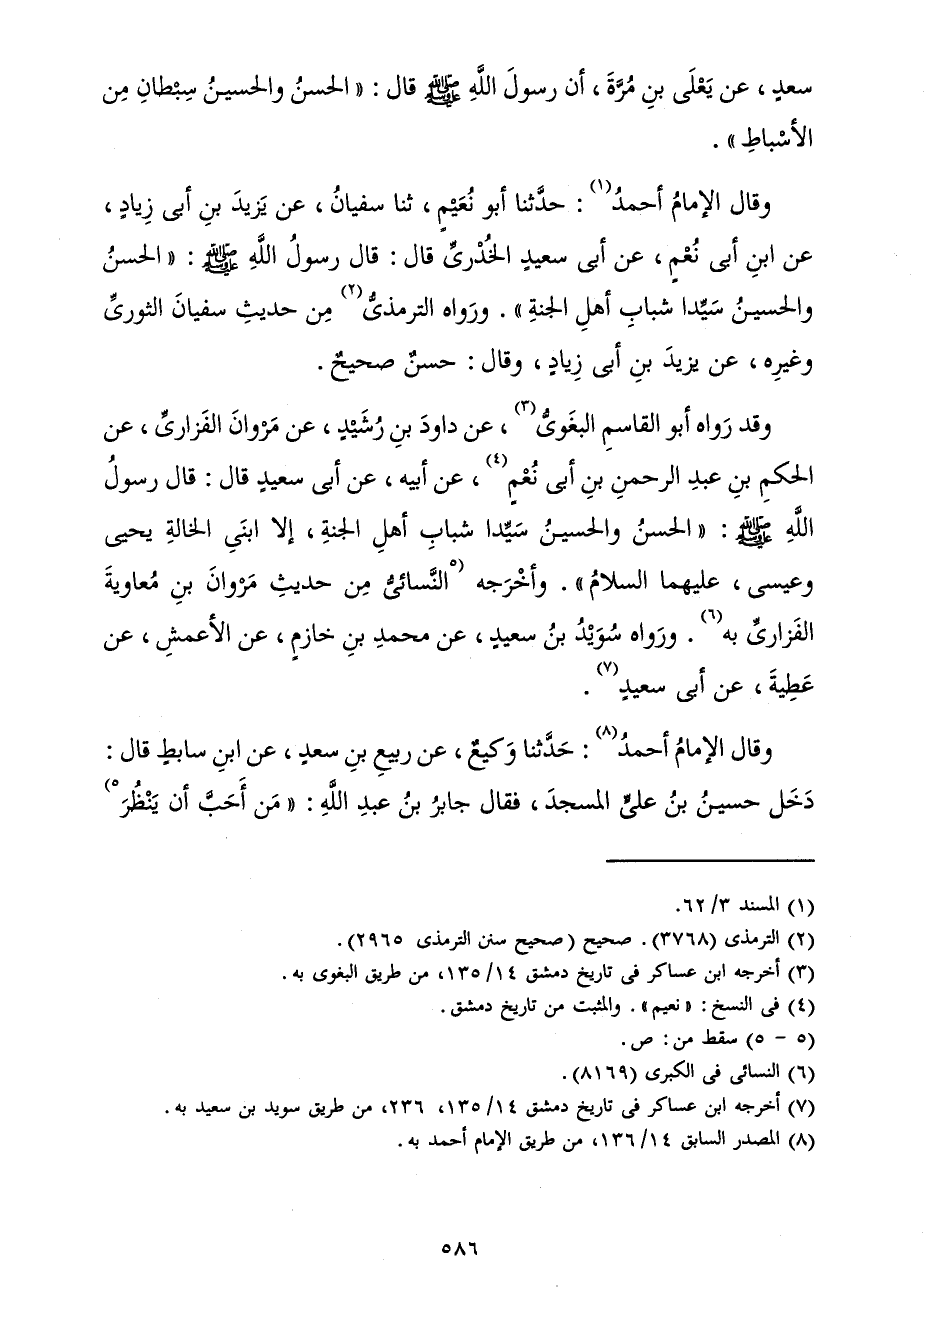 سعدٍ ، عن يَعْلَى بنِ مُرَّةَ ، أن رسولَ اللَّهِ ﷺ قال : « الحسنُ والحسينُ سِبْطانِ مِن
الأسْباطِ » .
وقال الإمامُ أحمدُ(١) : حدَّثنا أبو نُعَيْمٍ ، ثنا سفيانُ ، عن يَزِيدَ بنِ أبى زِيادٍ ،
عن ابنِ أبى نُعْمٍ ، عن أبى سعيدٍ الخُدْرىِّ قال : قال رسولُ اللَّهِ ﷺ : « الحسنُ
والحسينُ سَيِّدا شبابِ أهلِ الجنةِ » . ورَواه الترمذىُّ(٢) مِن حديثِ سفيانَ الثورىِّ
وغيرِه ، عن يزيدَ بنِ أبى زِيادٍ ، وقال : حسنٌ صحيحٌ .
وقد رَواه أبو القاسمِ البغَوىُّ(٣) ، عن داودَ بنِ رُشَيْدٍ ، عن مَرْوانَ الفَزارىِّ ، عن
الحكمِ بنِ عبدِ الرحمنِ بنِ أبى نُعْمٍ(٤) ، عن أبيه ، عن أبى سعيدٍ قال : قال رسولُ
اللَّهِ ﷺ : « الحسنُ والحسينُ سَيِّدا شبابِ أهلِ الجنةِ ، إلا ابنَىِ الخالةِ يحيى
وعيسى ، عليهما السلامُ » . وأخْرَجه (٥النَّسائىُّ مِن حديثِ مَرْوانَ بنِ مُعاويةَ
الفَزارىِّ به(٦) . ورَواه سُوَيْدُ بنُ سعيدٍ ، عن محمدِ بنِ خازمٍ ، عن الأعمشِ ، عن
عَطِيةَ ، عن أبى سعيدٍ(٧) .
وقال الإمامُ أحمدُ(٨) : حَدَّثنا وَكيعٌ ، عن ربيعِ بنِ سعدٍ ، عن ابنِ سابطٍ قال :
دَخَل حسينُ بنُ علىٍّ المسجدَ ، فقال جابرُ بنُ عبدِ اللَّهِ : « مَن أَحَبَّ أن يَنْظُرَ٥)
(١) المسند ٣/ ٦٢.
(٢) الترمذى (٣٧٦٨). صحيح (صحيح سنن الترمذى ٢٩٦٥).
(٣) أخرجه ابن عساكر فى تاريخ دمشق ١٤/ ١٣٥، من طريق البغوى به .
(٤) فى النسخ : « نعيم » . والمثبت من تاريخ دمشق .
(٥ - ٥) سقط من : ص .
(٦) النسائى فى الكبرى (٨١٦٩).
(٧) أخرجه ابن عساكر فى تاريخ دمشق ١٤/ ١٣٥، ٢٣٦، من طريق سويد بن سعيد به .
(٨) المصدر السابق ١٤/ ١٣٦، من طريق الإمام أحمد به .
٥٨٦